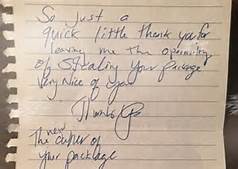 So Just a
quick little thank you for
leaving me the opportunity
of Stealing Your package
Very Nice of You
Thanks
The new owner of
your package